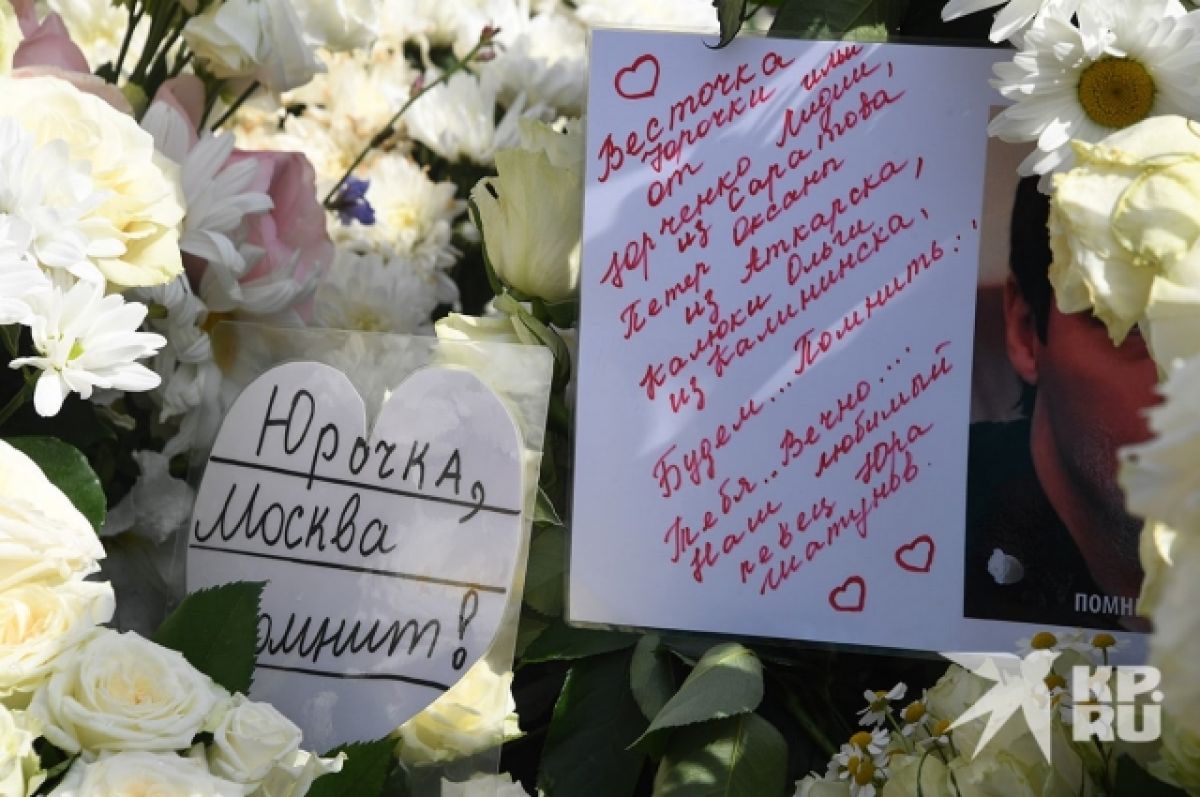 Юрочка,
Москва
омнит!
Весточка
Юрочки или
от
Юрченко Лидии,
из Саратова
Петер Оксаны
из Аткарска,
Калюки Ольги
из Калининска,
Будем...Помнить...
Тебя...Вечно...
Наш любимый
певец Юра
Шатунов.
ПОМН
KP.
RU